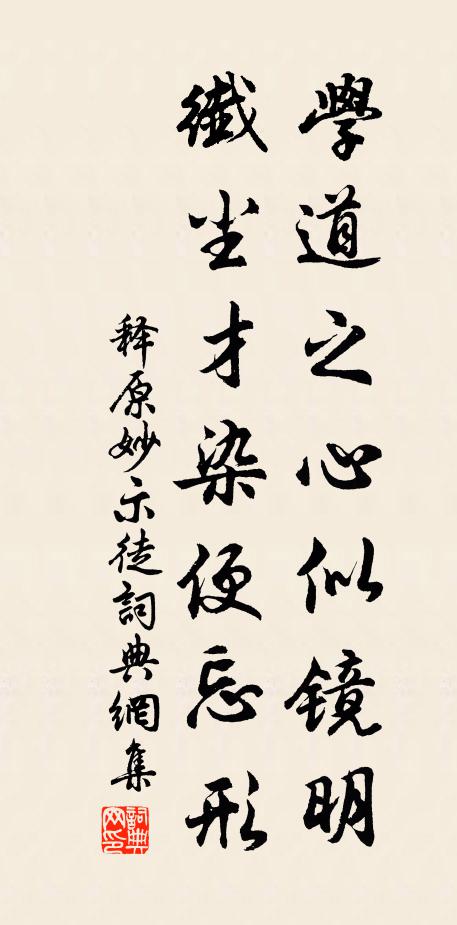 學道之心似鏡明
纖尘才染便忘形
释原妙示徒詞典網集
詞典網印